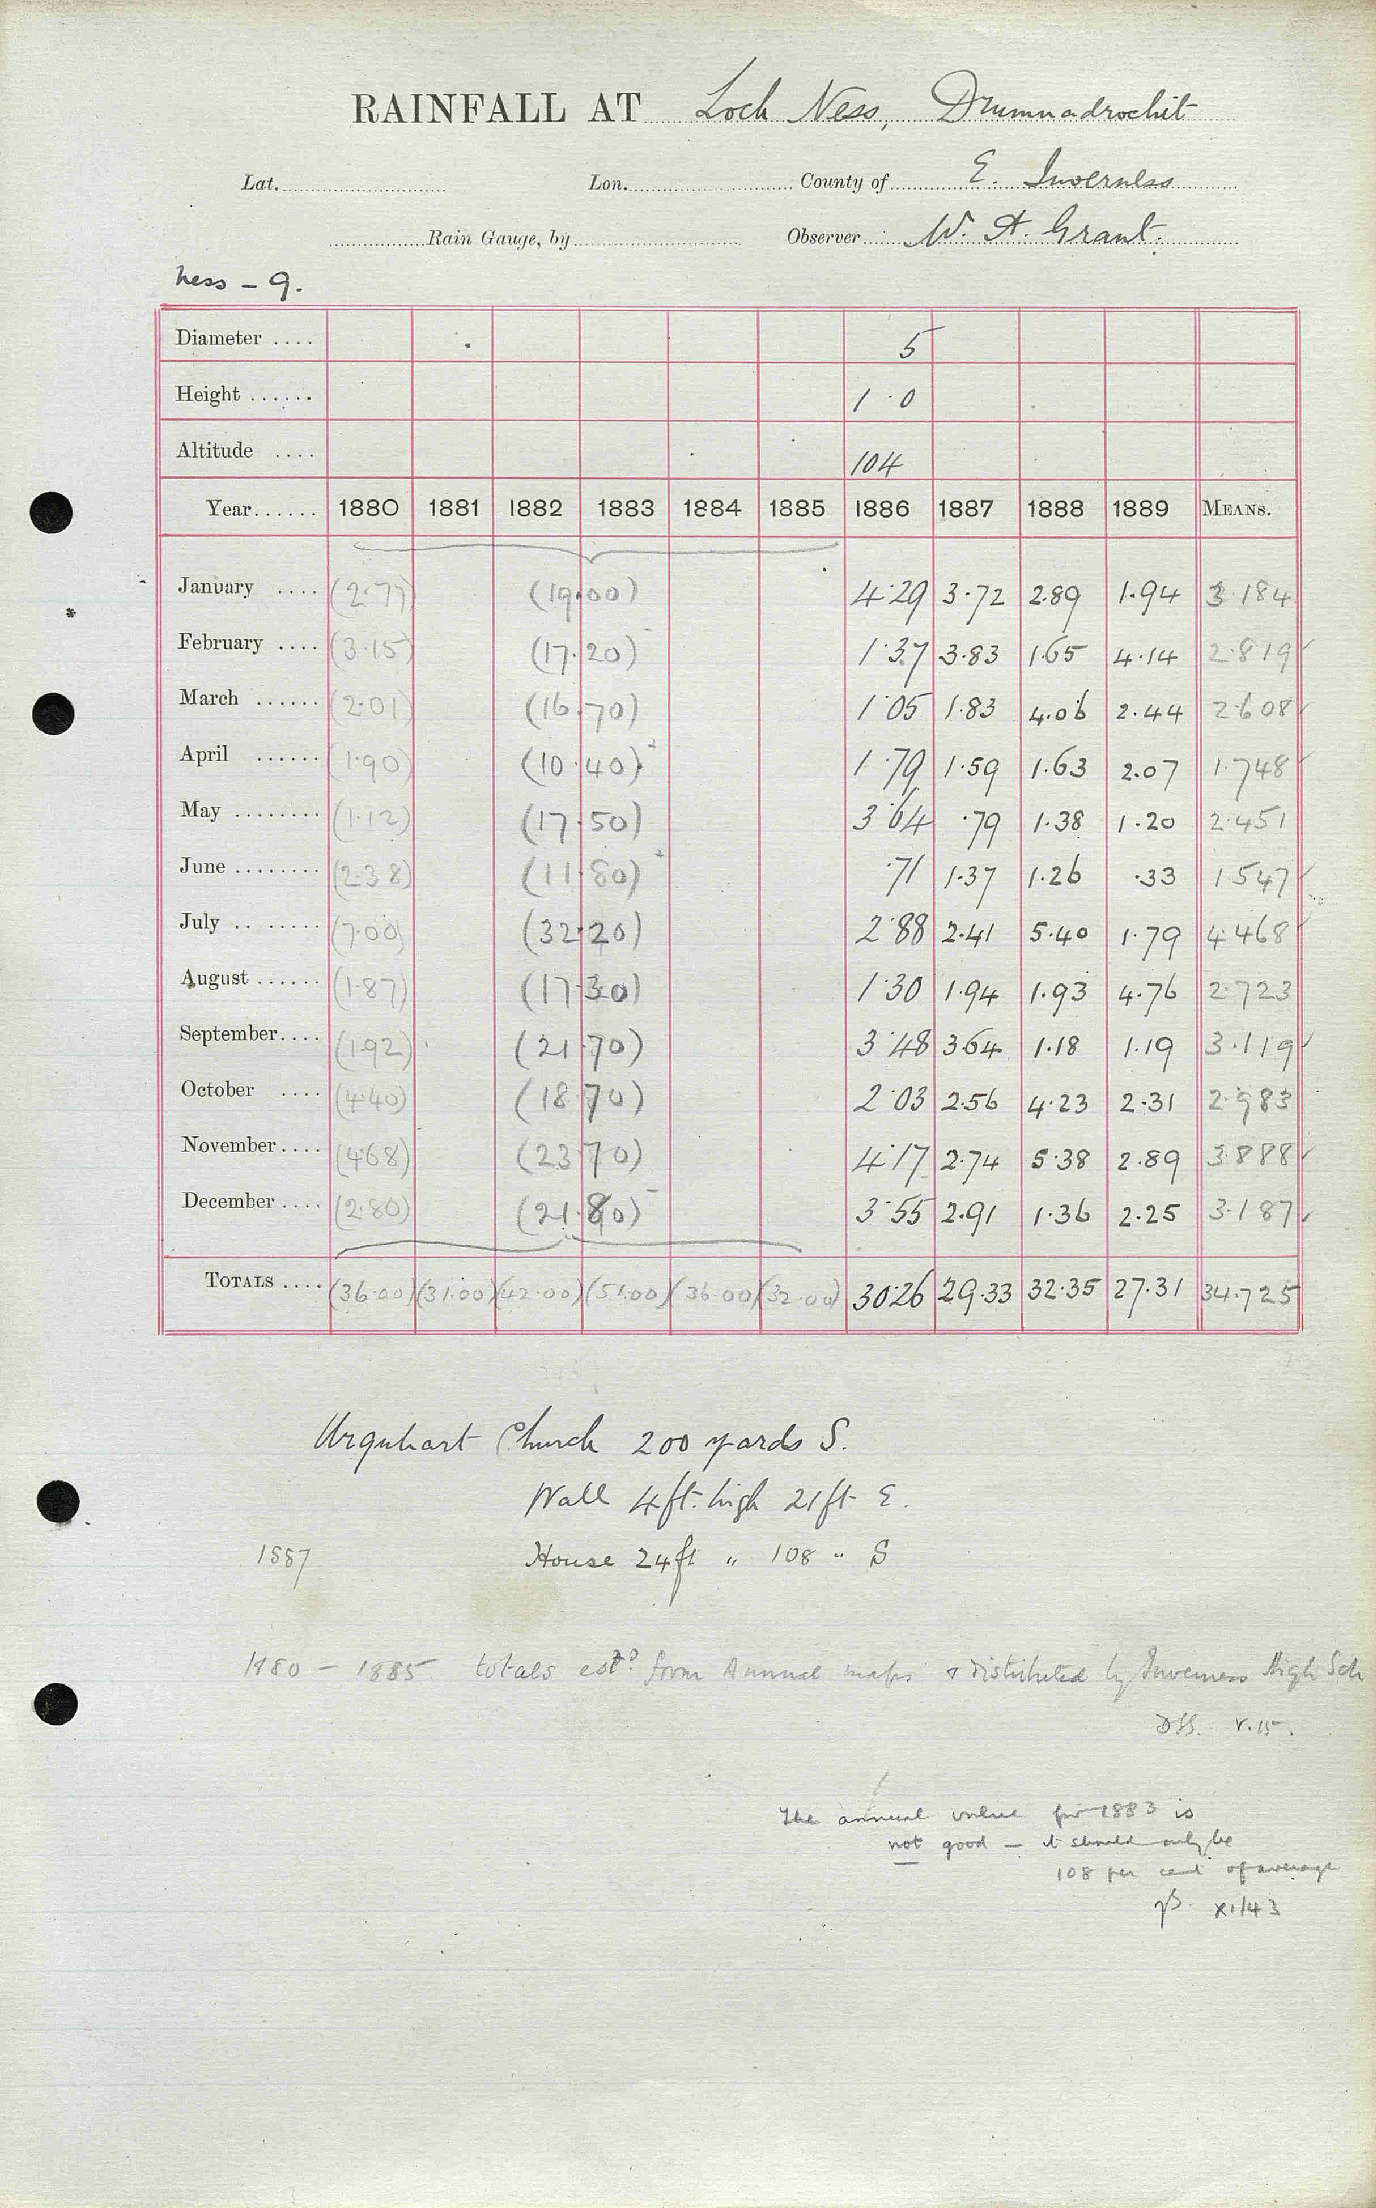 RAINFALL AT Loch Ness, Drumnadrochit
Lat. Lon. County of E. Inverness
Rain Gauge, by Observer W. A. Grant.
Ness – 9.
Diameter .... 5
Height ...... 1·0
Altitude .... 104
Year...... 1880 1881 1882 1883 1884 1885 1886 1887 1888 1889 MEANS.
January .... (2·77) (19·00) 4·29 3·72 2·89 1·94 3·184
February .... (3·15) (17·20) 1·37 3·83 1·65 4·14 2·819
March ...... (2·01) (16·70) 1·05 1·83 4·06 2·44 2·608
April ...... (1·90) (10·40) 1·79 1·59 1·63 2·07 1·748
May ........ (1·12) (17·50) 3·64 ·79 1·38 1·20 2·451
June ........ (2·38) (11·80) ·71 1·37 1·26 ·33 1·547
July .. ..... (7·00) (32·20) 2·88 2·41 5·40 1·79 4·468
August ...... (1·87) (17·30) 1·30 1·94 1·93 4·76 2·723
September.... (1·92) (21·70) 3·48 3·64 1·18 1·19 3·119
October .... (4·40) (18·70) 2·03 2·56 4·23 2·31 2·983
November.... (4·68) (23·70) 4·17 2·74 5·38 2·89 3·888
December .... (2·80) (21·80) 3·55 2·91 1·36 2·25 3·187
TOTALS .... (36·00) (31·00) (42·00) (51·00) (36·00) (32·00) 30·26 29·33 32·35 27·31 34·725
Urquhart Church 200 yards S.
Wall 4ft. high 21ft E.
1887 House 24ft " 108 " S
1880 – 1885 totals estd. from Annual maps & distributed by Inverness High Sch
V.15.
The annual value for 1883 is
not good – it should only be
108 per cent of average
XI/43